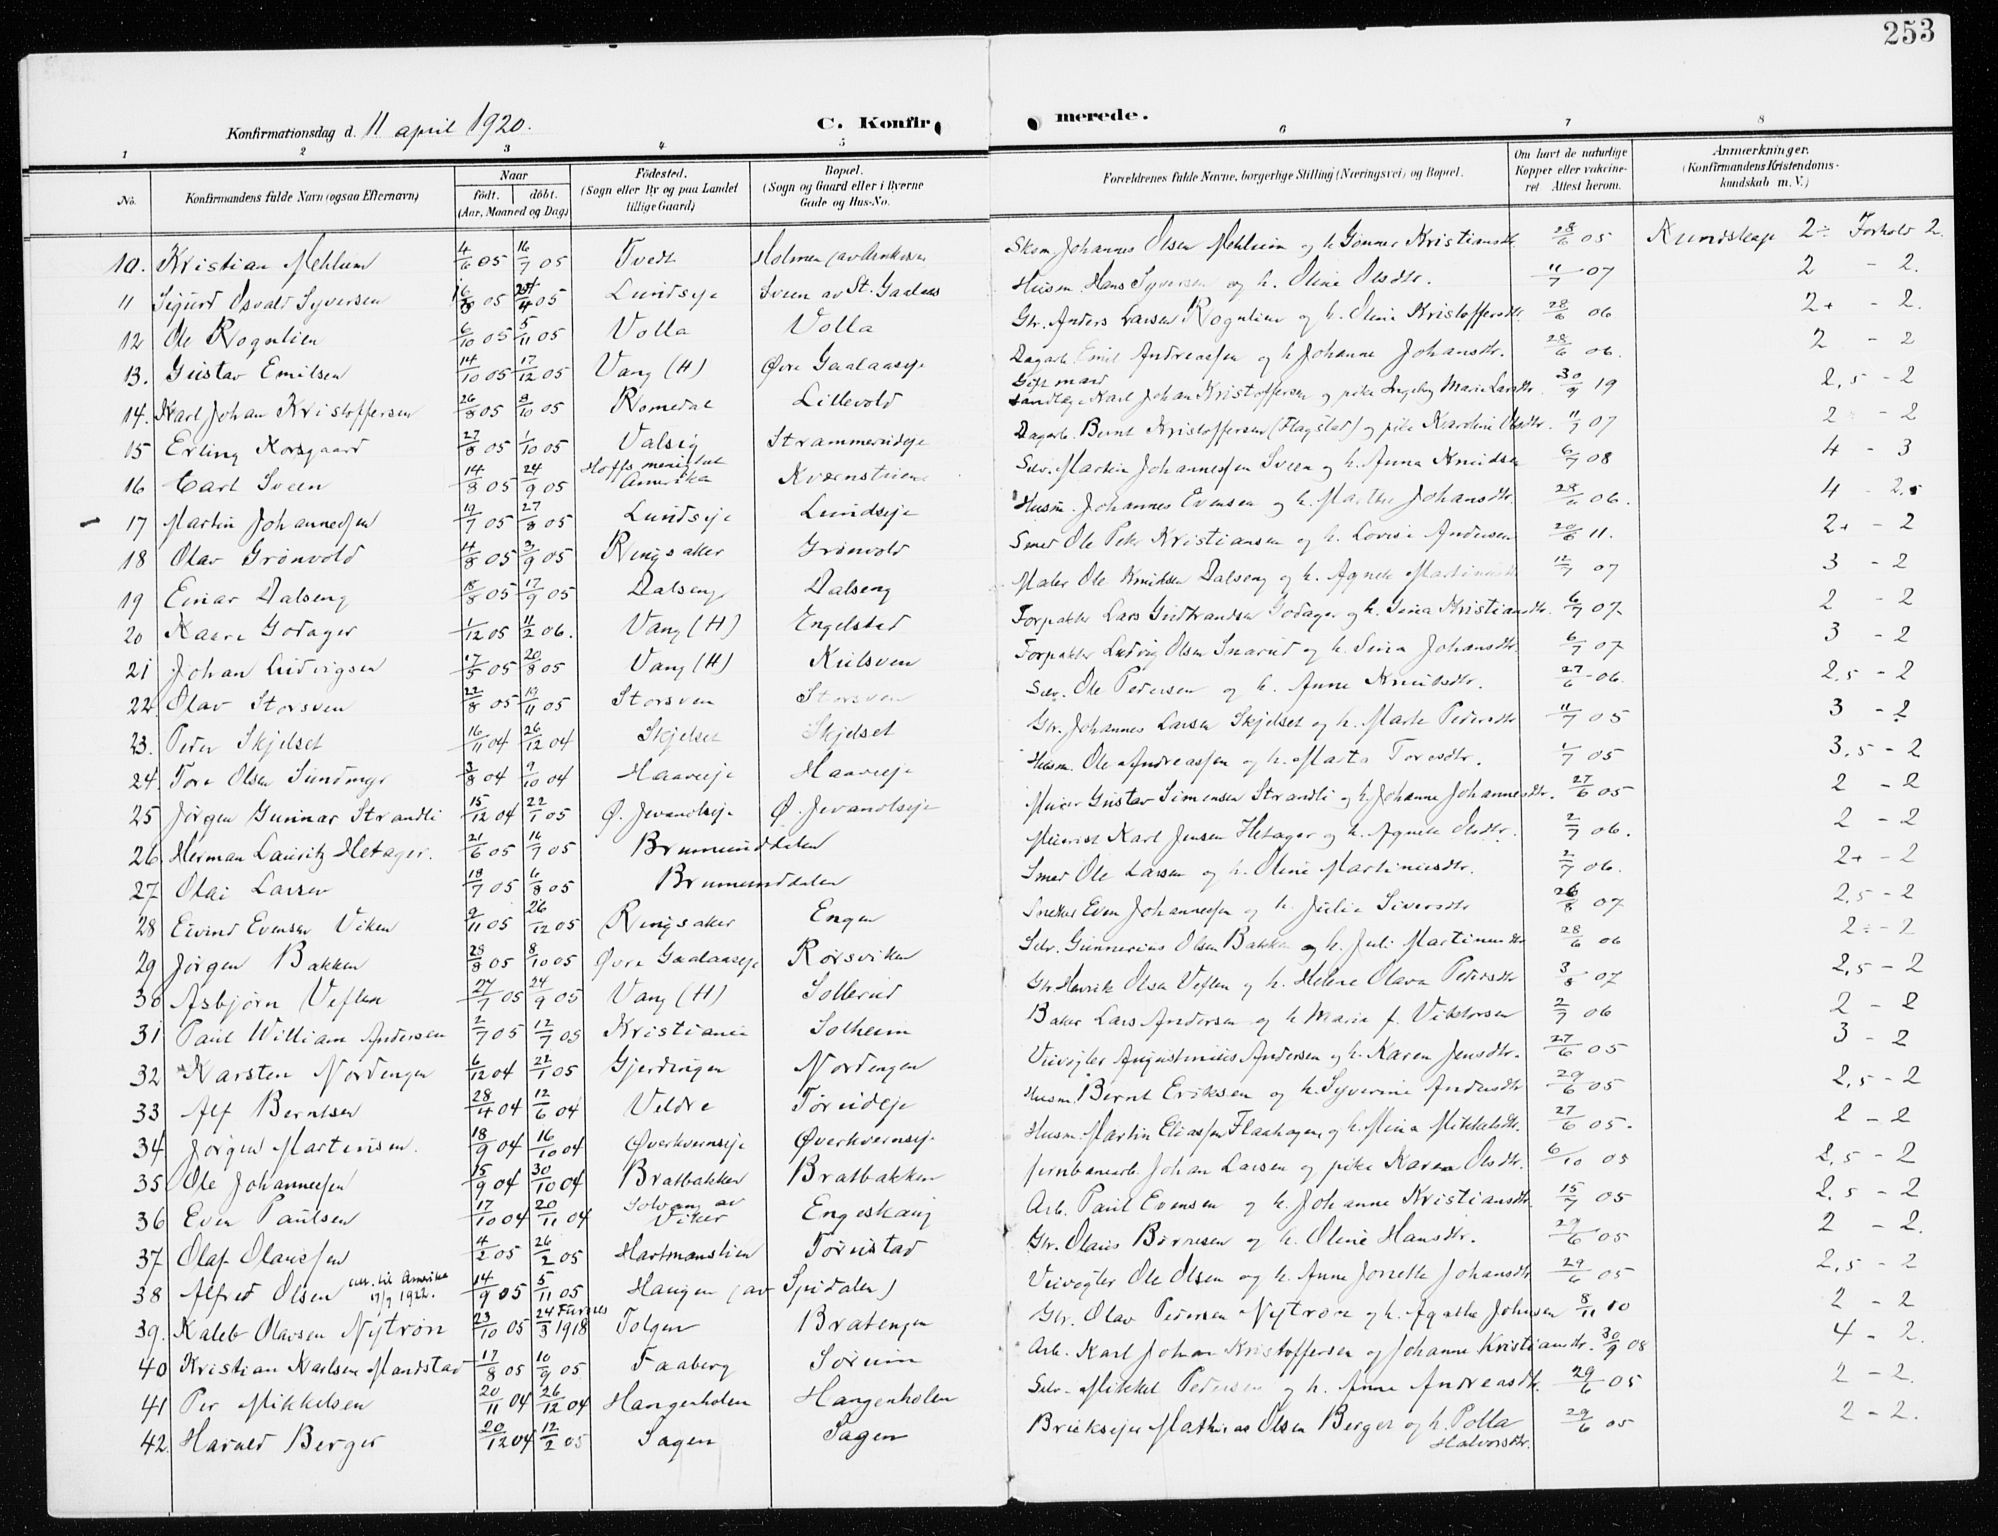 253
Konfirmationsdag d. 11 april 1920. C. Konfir merede.
1 2 3 4. 5 6 7 8
No. Konfirmandens fulde Navn (ogsaa Efternavn) Naar født. døbt. (Aar, Maaned og Dag) Fødested. (Sogn eller By og paa Landet tillige Gaard) Bopæl. (Sogn og Gaard eller i Byerne Gade og Hus-No. Forældrenes fulde Navne, borgerlige Stilling (Næringsvei) og Bopæl. Om havt de naturlige Kopper eller vakcineret Attest herom. Anmærkninger. (Konfirmandens Kristendomskundskab m. V.)
10. Kristian Mehlum 4/6 05 16/7 05 Tvedt Holmen (av Skm. Johannes Olsen Mehlum og h. Gunner Kristiansdtr. 28/6 05 Kundskap 2÷ Forhold 2.
11 Sigurd Osvald Syversen 05 05 Lundseje Sveen av St. Gaalaas Husm. Hans Syversen og h. Oline Olsdtr. 11/7 07 2 - 2.
12 Ole Rognlien 6/10 05 5/11 05 Volla Volla Gbr. Anders Larsen Rognlien og h. Oline Kristoffersdtr. 28/6 06 2+ - 2.
13. Gustav Emilsen 14/10 05 17/12 05 Vang (H) Øvre Gaalaaseje Dagarb. Emil Andreassen og h. Johanne Johansdtr. 28/6 06. 2 - 2
14. Karl Johan Kristoffersen 26/8 05 8/10 05 Romedal Lillevold Gift mand Karl Johan Kristoffersen og pike Ingeborg Marie Larsdtr. 30/9 19 2,5 - 2
15 Erling Korsgaard 27/8 05 1/10 05 Valsig Strammerudeje Dagarb. Bernt Kristoffersen (Flagstad) og pike Karoline Olsdtr. 11/7 07 2 - 2
16 Carl Sveen 14/8 05 24/9 05 Hoffs menighet Amerika Kvænstuen Selv. Martin Johannessen Sveen og h. Anna Knudsen 6/7 08 4 - 3
17 Martin Johannessen 19/7 05 27/8 05 Lundseje Lundseje Husm. Johannes Evensen og h. Marthe Johansdtr. 28/6 06. 4 - 2,5
18 Olav Grønvold 4/8 05 3/9 05 Ringsaker Grønvold Smed Ole Peter Kristiansen og h. Lovise Andersen 20/6 11. 2+ - 2
19 Einar Dalseng 18/8 05 17/9 05 Dalseng Dalseng Maler Ole Knudsen Dalseng og h. Agnete Martinusdtr 12/7 07 3 - 2
20 Kaare Godager 1/12 05 11/2 06. Vang (H) Engelstad Forpakter Lars Gudbrandsen Godager og h. Gina Kristiansdtr. 6/7 07. 2 - 2
21 Johan Ludvigsen 17/5 05 20/8 05 Vang (H) Kielsven Forpakter Ludvig Olsen Snarud og h. Sina Johansdtr. 6/7 07 3 - 2
22. Olav Storsven 22/8 05 19/11 05 Storsven Storsven Selv. Ole Pedersen og h. Anne Knudsdtr. 27/6 06. 2,5 - 2
23. Peder Skjelset 16/11 04 26/12 04 Skjelset Skjelset Gbr. Johannes Larsen Skjelset og h. Marte Pedersdtr 11/7 05 3 - 2
24. Tore Olsen Sundmyr 3/8 04 9/10 04 Haaveje Haaveje Husm. Ole Andreassen og h. Marta Toresdtr. 1/7 05 3,5 - 2
25 Jørgen Gunnar Strandli 15/12 04 22/1 05 Ø. Jevanolseje Ø. Jevanolseje Murer Gustav Simensen Strandli og h. Johanne Johannesdtr. 27/6 05 2 - 2
26. Herman Lauritz Hetager. 21/6 05 16/7 05 Brumunddalen Meierist Karl Jensen Hetager og h. Agnete Olsdtr. 2/7 06. 2 - 2
27 Olai Larsen 18/7 05 6/8 05 Brumunddalen Smed Ole Larsen og h. Oline Martiniusdtr. 2/7 06. 2+ - 2
28 Eivind Evensen Viken 9/11 05 26/12 05 Ringsaker Engen Snekker Even Johannessen og h. Julie Siversdtr 26/8 07 2,5 - 2
29 Jørgen Bakken 28/8 05 8/10 05 Øvre Gaalaaseje Rørsviken Selv. Gunnerius Olsen Bakken og h. Juli Martinusdtr 28/6 06 2÷ - 2
30 Asbjørn Veflen 27/7 05 24/9 05 Vang (H) Sollerud Gbr. Henrik Olsen Veflen og h. Helene Olava Pedersdtr 3/8 07 2,5 - 2
31 Paul William Andersen 2/7 05 12/7 05 Kristiania Solheim Baker Lars Andersen og h. Marie f. Viktorsen 2/7 06 2 - 2
32 Karsten Nordengen 6/12 04 22/1 05 Gjerdingen Nordengen Veivogter Augustinius Andersen og h. Karen Jensdtr. 27/6 05 3 - 2
33 Alf Berntsen 28/4 04 12/6 04 Veldre Tørudeje Husm. Bernt Eriksen og h. Syverine Andersdtr 29/6 05 2,5 - 2
34 Jørgen Martinsen. 18/9 04 16/10 04 Øverkvernseje Øverkvernseje Husm. Martin Eliassen Flaahagen og h. Mina Mikkelsdtr. 27/6 05. 2 - 2
35 Ole Johannessen 15/9 04 30/10 04 Bratbakken Bratbakken Jernbanearb. Johan Larsen og pike Karen Olsdtr. 6/10 05 2,5 - 2
36 Even Paulsen 17/10 04 20/11 04 Solvang av Viker Engeskaug Arb. Paul Evensen og h. Johanne Kristiansdtr. 15/7 05 2,5 - 2
37 Olaf Olaussen 4/2 05 26/2 05 Hartmanstien Tørustad Gbr. Olaus Børresen og h. Oline Hansdtr. 29/6 05 2 - 2.
38 Alfred Olsen utv. til Amerika 17/7 1922. 14/9 05 5/11 05 Haugen (av Spidalen) Veivogter Ole Olsen og h. Anne Jonette Johansdtr 29/6 05 2,5 - 2
39. Kaleb Olavsen Nytrøn 23/10 05 24/3 1918 Furnes Tolgen Bratengen Gbr. Olav Pedersen Nytrøen og h. Agathe Johnsen 8/11 10 2 - 2
40 Kristian Karlsen Mandstad 17/8 05 10/9 05 Faaberg Sørum Arb. Karl Johan Kristoffersen og Johanne Kristiansdtr. 30/9 08 4 - 2.
41 Per Mikkelsen 20/11 04 26/12 04 Haugenholen Haugenholen Selv. Mikkel Pedersen og h. Anne Andreasdtr. 29/6 05 2 - 2.
42. Harald Berger 20/12 04 12/2 05 Sagen Sagen Brukseier Mathias Olsen Berger og h. Polla Halvorsdtr. 29/6 05 2 - 2.